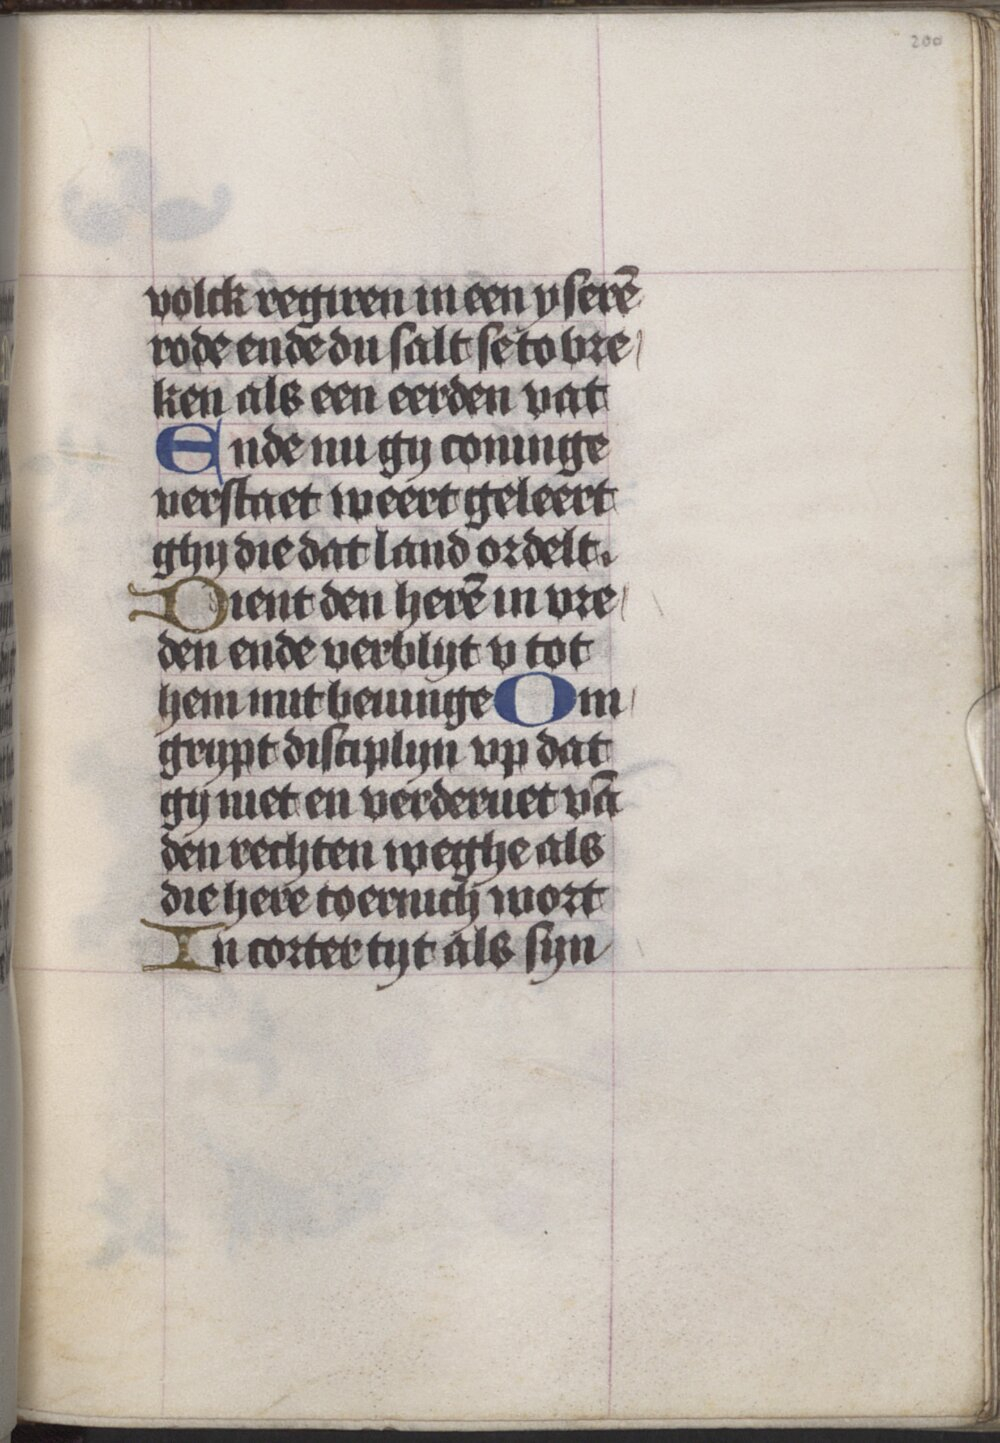 200
volck regiren in een yserē
rode ende du salt se to bre
ken als een eerden vat
Ende nu gy coninge
verstaet weert geleert
ghy die dat land ordelt.
Dient den herē in vre
den ende verblijt v tot
hem mit beuinge Om
grijpt disciplijn vp dat
gy niet en verderuet vā
den rechten weghe als
die here toernich wort
In corter tijt als sijn